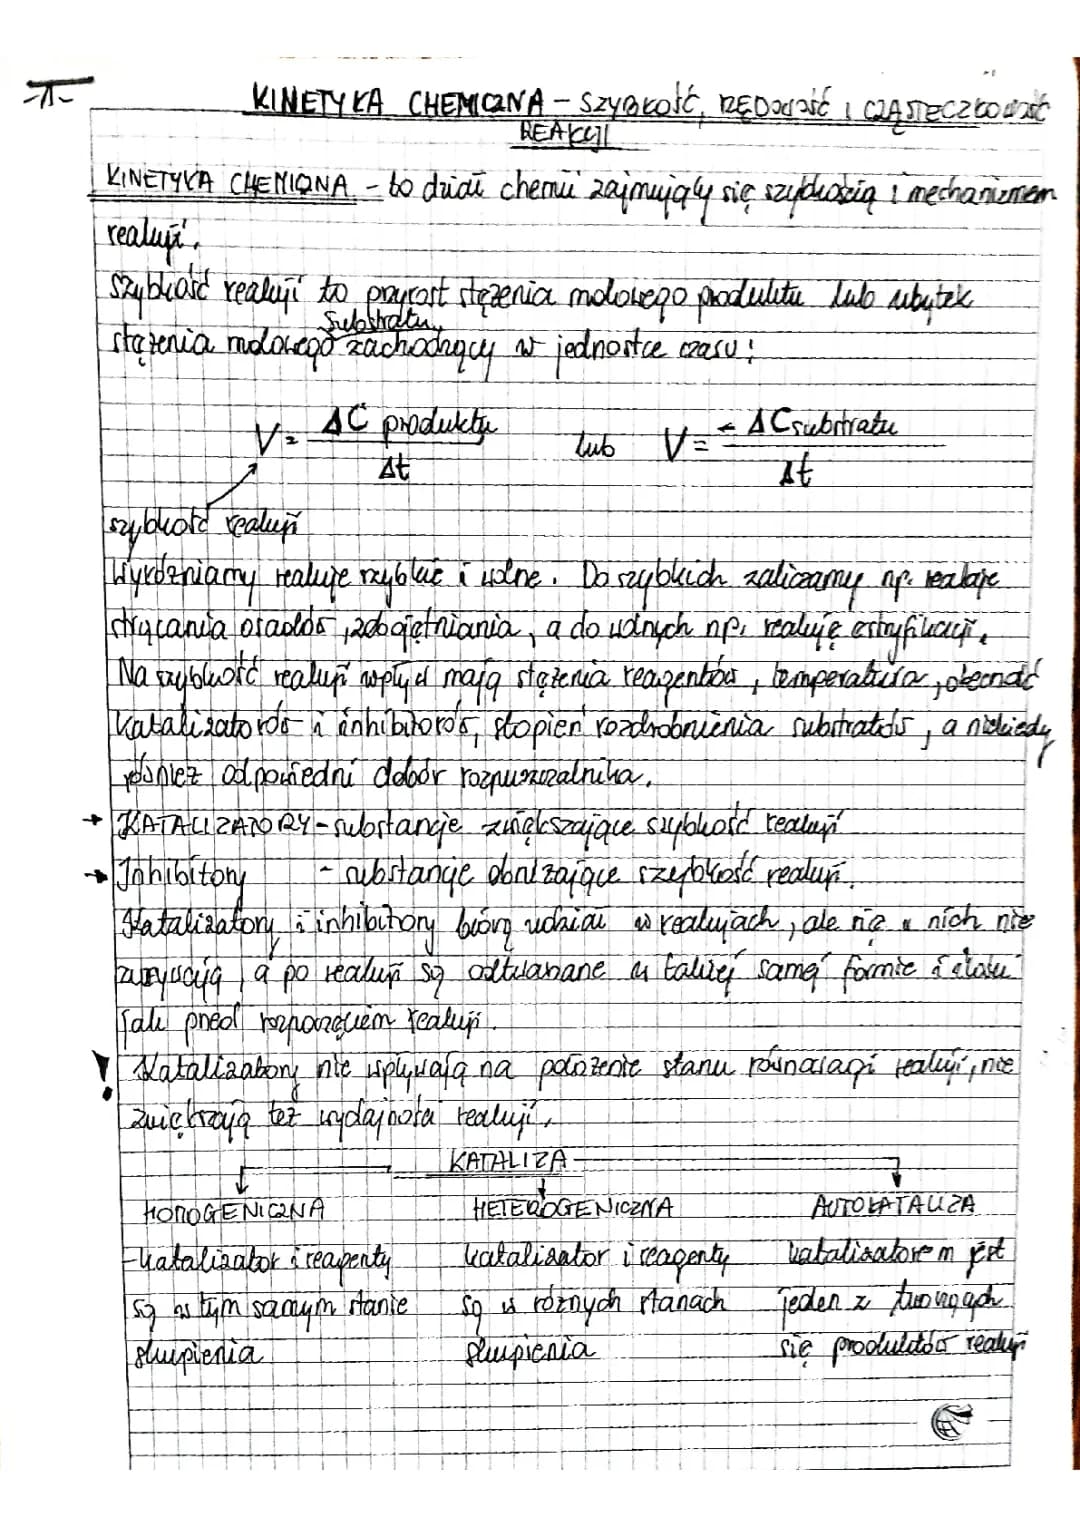 -1-
KINETYKA CHEMICZNA - SZYBKOŚĆ, RZĘDOWOŚĆ I CZĄSTECZKOWOŚĆ
REAKCJI
KINETYKA CHEMICZNA - to dział chemii zajmujący się szybkością i mechanizmem
reakcji.
Szybkość reakcji to przyrost stężenia molowego produktu lub ubytek
substratu
stężenia molowego zachodzący w jednostce czasu:
V = ΔC produktu / Δt lub V = - ΔC substratu / Δt
szybkość reakcji
Wyróżniamy reakcje szybkie i wolne. Do szybkich zaliczamy np. reakcje
strącania osadów, zobojętniania, a do wolnych np. reakcję estryfikacji.
Na szybkość reakcji wpływ mają stężenia reagentów, temperatura, obecność
katalizatorów i inhibitorów, stopień rozdrobnienia substratów, a niekiedy
również odpowiedni dobór rozpuszczalnika.
→ KATALIZATORY - substancje zwiększające szybkość reakcji
→ Inhibitory - substancje obniżające szybkość reakcji.
Katalizatory i inhibitory biorą udział w reakcjach, ale się w nich nie
zużywają, a po reakcji są odtwarzane w takiej samej formie i
jak przed rozpoczęciem reakcji.
! Katalizatory nie wpływają na położenie stanu równowagi reakcji, nie
zwiększają też wydajności reakcji.
KATALIZA
HOMOGENICZNA HETEROGENICZNA AUTOKATALIZA
- katalizator i reagenty katalizator i reagenty katalizatorem jest
są w tym samym stanie są w różnych stanach jeden z tworzących
skupienia skupienia się produktów reakcji